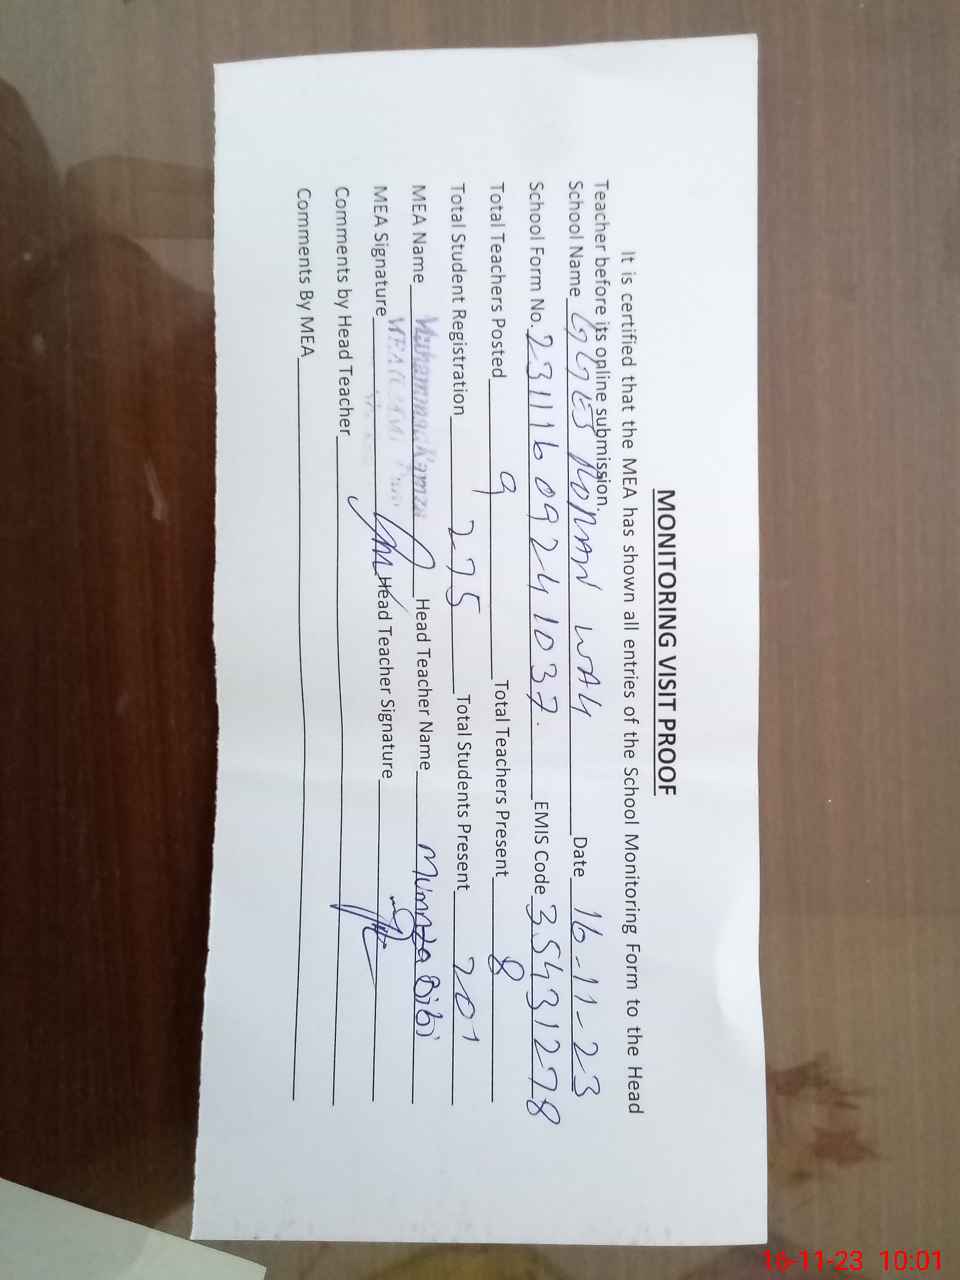 MONITORING VISIT PROOF
It is certified that the MEA has shown all entries of the School Monitoring Form to the Head
Teacher before its online submission.
School Name GGES WAH Date 16-11-23
School Form No. 231116 0924 1037. EMIS Code 35431278
Total Teachers Posted 9 Total Teachers Present 8
Total Student Registration 275 Total Students Present 201
MEA Name Muhammad Hamza Head Teacher Name Mumtaz Bibi
MEA Signature Head Teacher Signature
Comments by Head Teacher
Comments By MEA
16-11-23 10:01